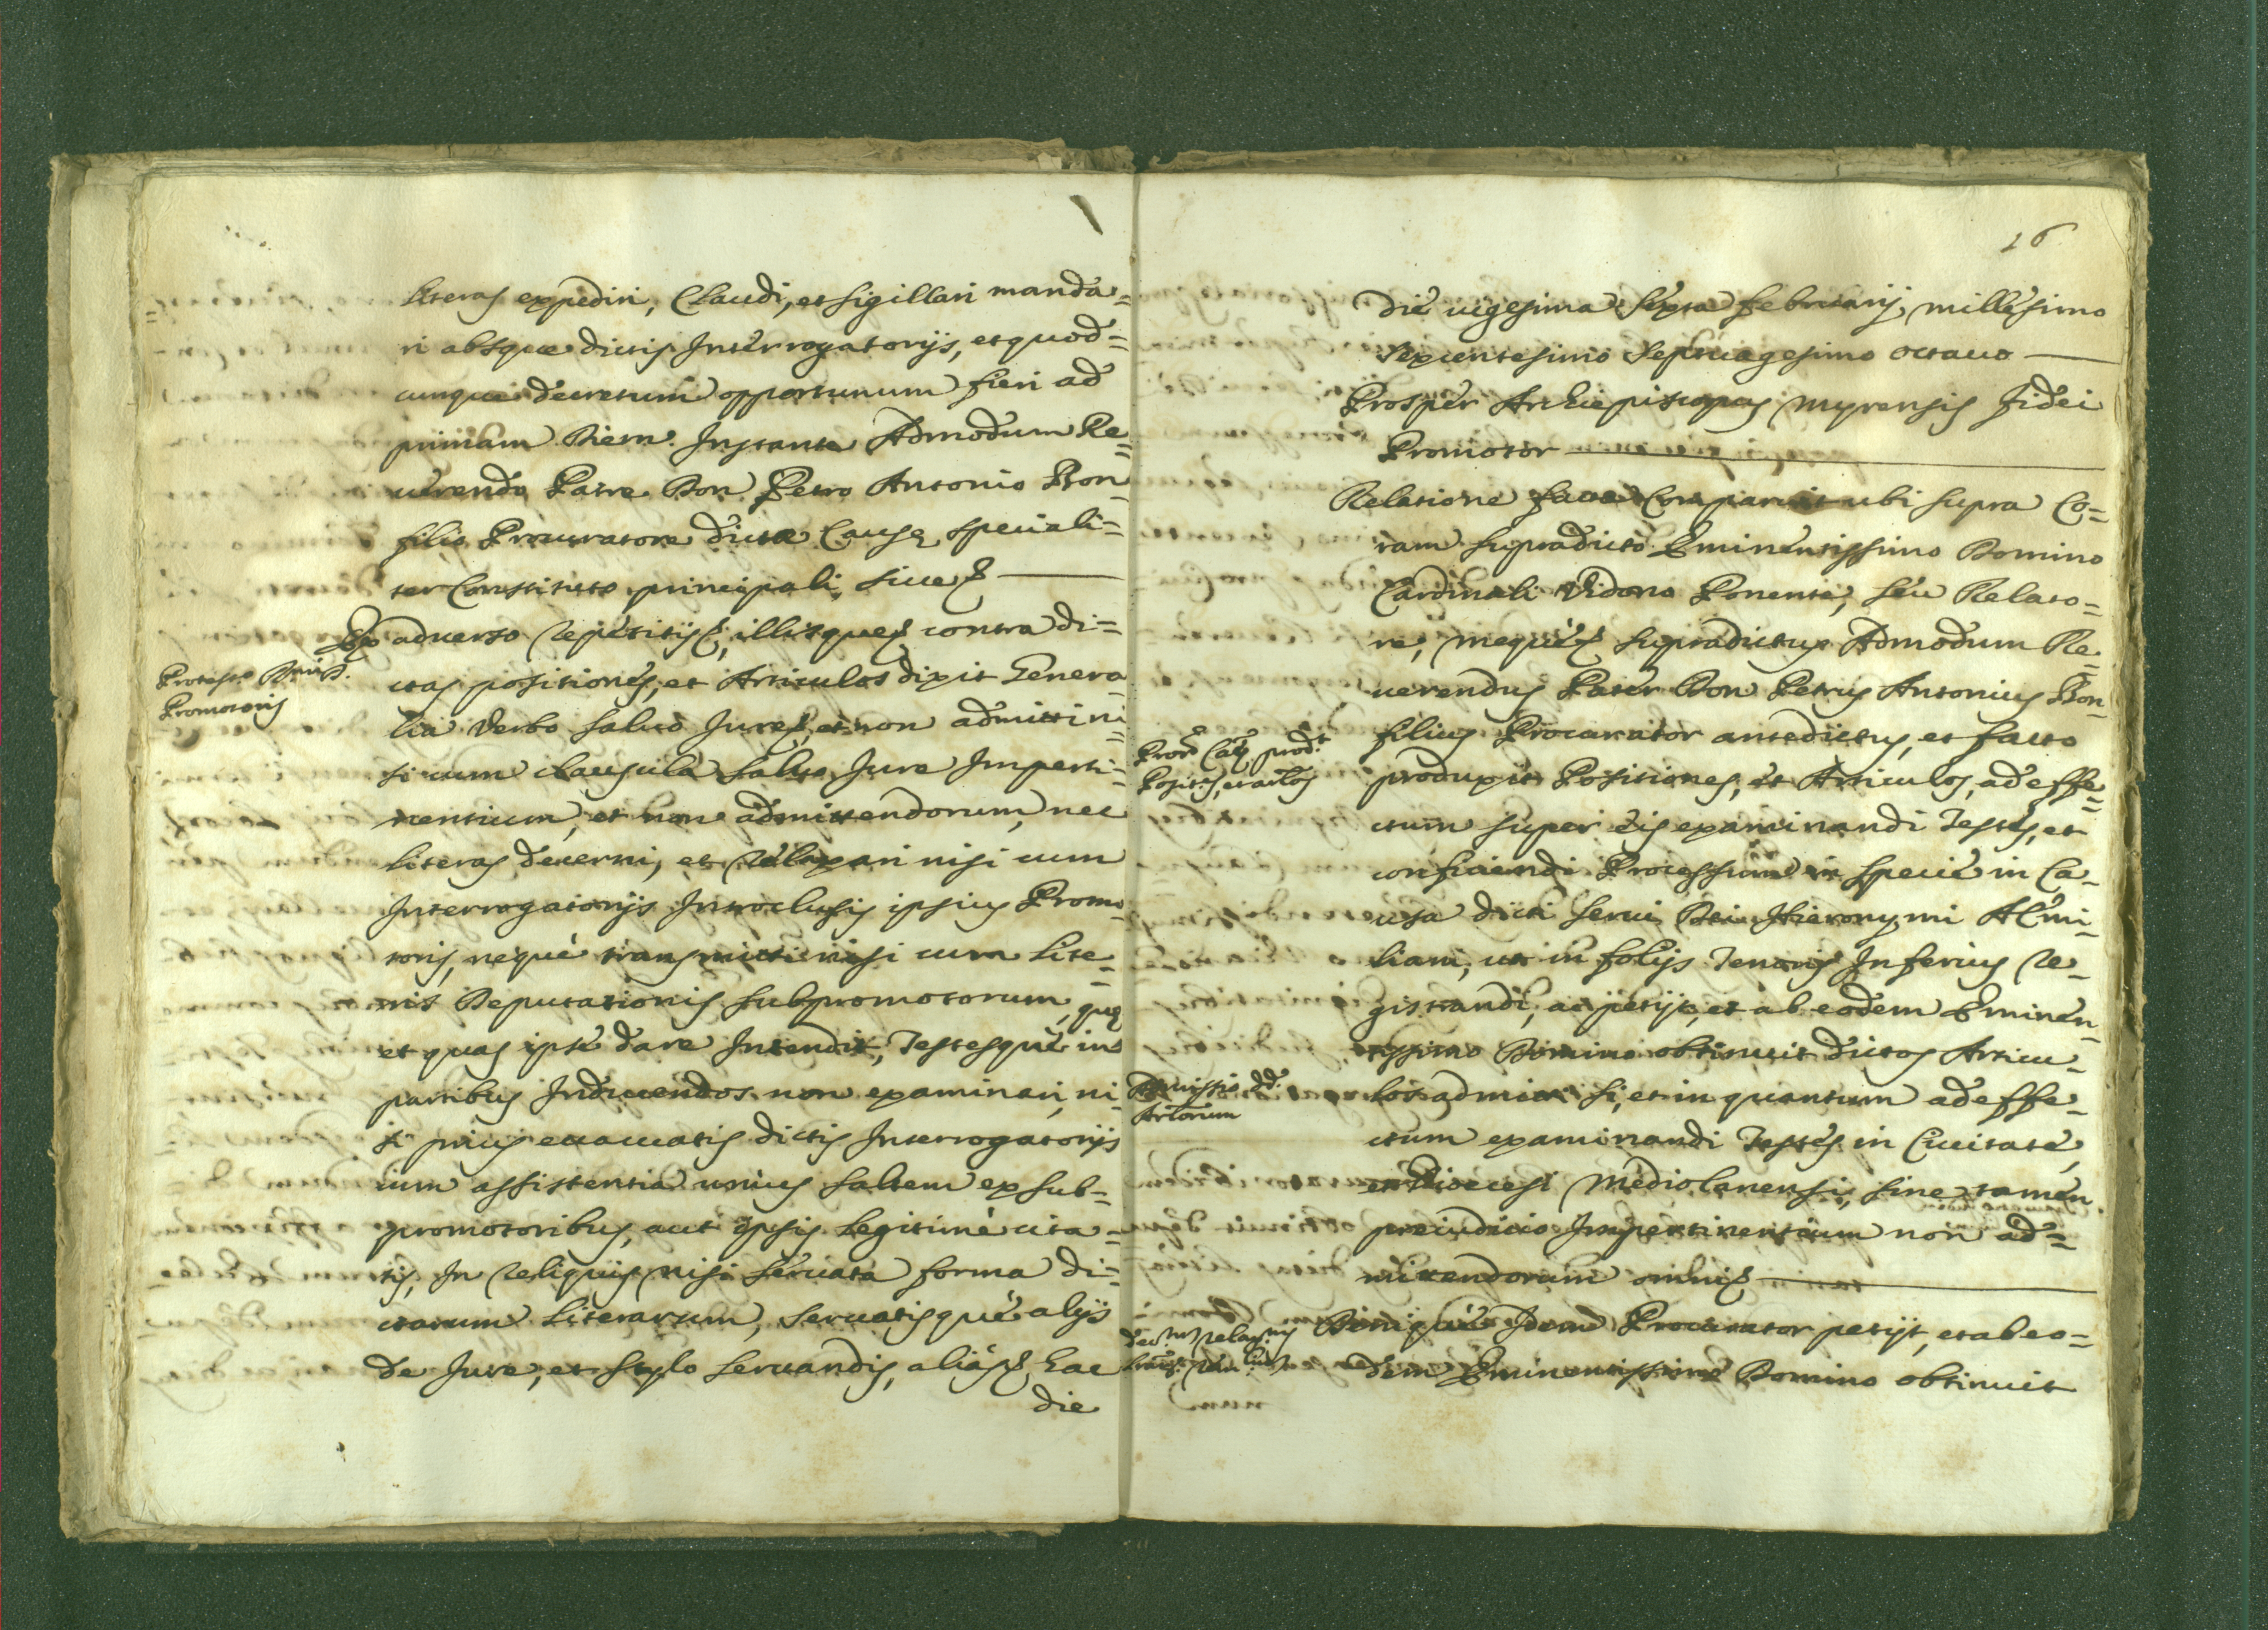 literas expediri, Claudi, et sigillari manda=
ri absque dictis Interrogatorijs, et quod=
cunque decretum opportunum fieri ad
primam Diem. Instante Admodum Re=
uerendo Patre Don Petro Antonio Bon
filio Procuratore dictæ Causę speciali=
ter Constituto principali, siue &
Ex aduerso repetitis &, illisque & contra di=
Protest.o
Promotoris
ctas positiones, et Articulos dixit Genera
lia Verbo saluo Iure &, et non admitti ni
si cum clausula saluo Iure Imperti=
nentium, et non admittendorum, nec
literas decerni, et relaxari nisi cum
Interrogatorijs Introclusis ipsius Promo=
toris, neque transmitti nisi cum Lite=
ris Deputationis subpromotorum, quę
et quas ipse dare Intendit, Testesque in
partibus Inducendos non examinari, ni
si prius euacuatis dictis Interrogatorijs
cum assistentia unius saltem ex sub=
promotoribus, aut ipsis legitime cita=
tis, In reliquis nisi seruata forma di=
ctarum Literarum, seruatisque alijs
de Iure, et stylo seruandis, alias & hac
die
16
Die uigesima sexta februarij millesimo
sexcentesimo septuagesimo octauo
Prosper Archiepiscopus Myrensis fidei
Promotor
Relatione facta Comparuit ubi supra Co=
ram supradicto Eminentissimo Domino
Cardinali Vidono Ponente, seu Relato=
re, meque & supradictus Admodum Re=
uerendus Pater Don Petrus Antonius Bon=
filius Procurator antedictus, et facto
Pror Caę prod.t
Posit.s, et artlos
produxit Positiones, et Articulos, ad effe=
ctum super eis examinandi Testes, et
conficiendi Processum in specie in Ca=
usa dicti serui Dei Hieronymi AEmi=
liani, ut in folijs Tenoris Inferius re=
gistrandi, ac petijt, et ab eodem Eminen=
tissimo Domino obtinuit dictos Articu=
Admissio dd.
Artorum
los admitti si, et in quantum ad effe=
ctum examinandi Testes in Ciuitate,
et Diœcesi Mediolanensi, sine tamen
preiudicio Impertinentium non ad=
mittendorum omni &
Denique Idem Procurator petijt, et ab eo=
dem Eminentissimo Domino obtinuit